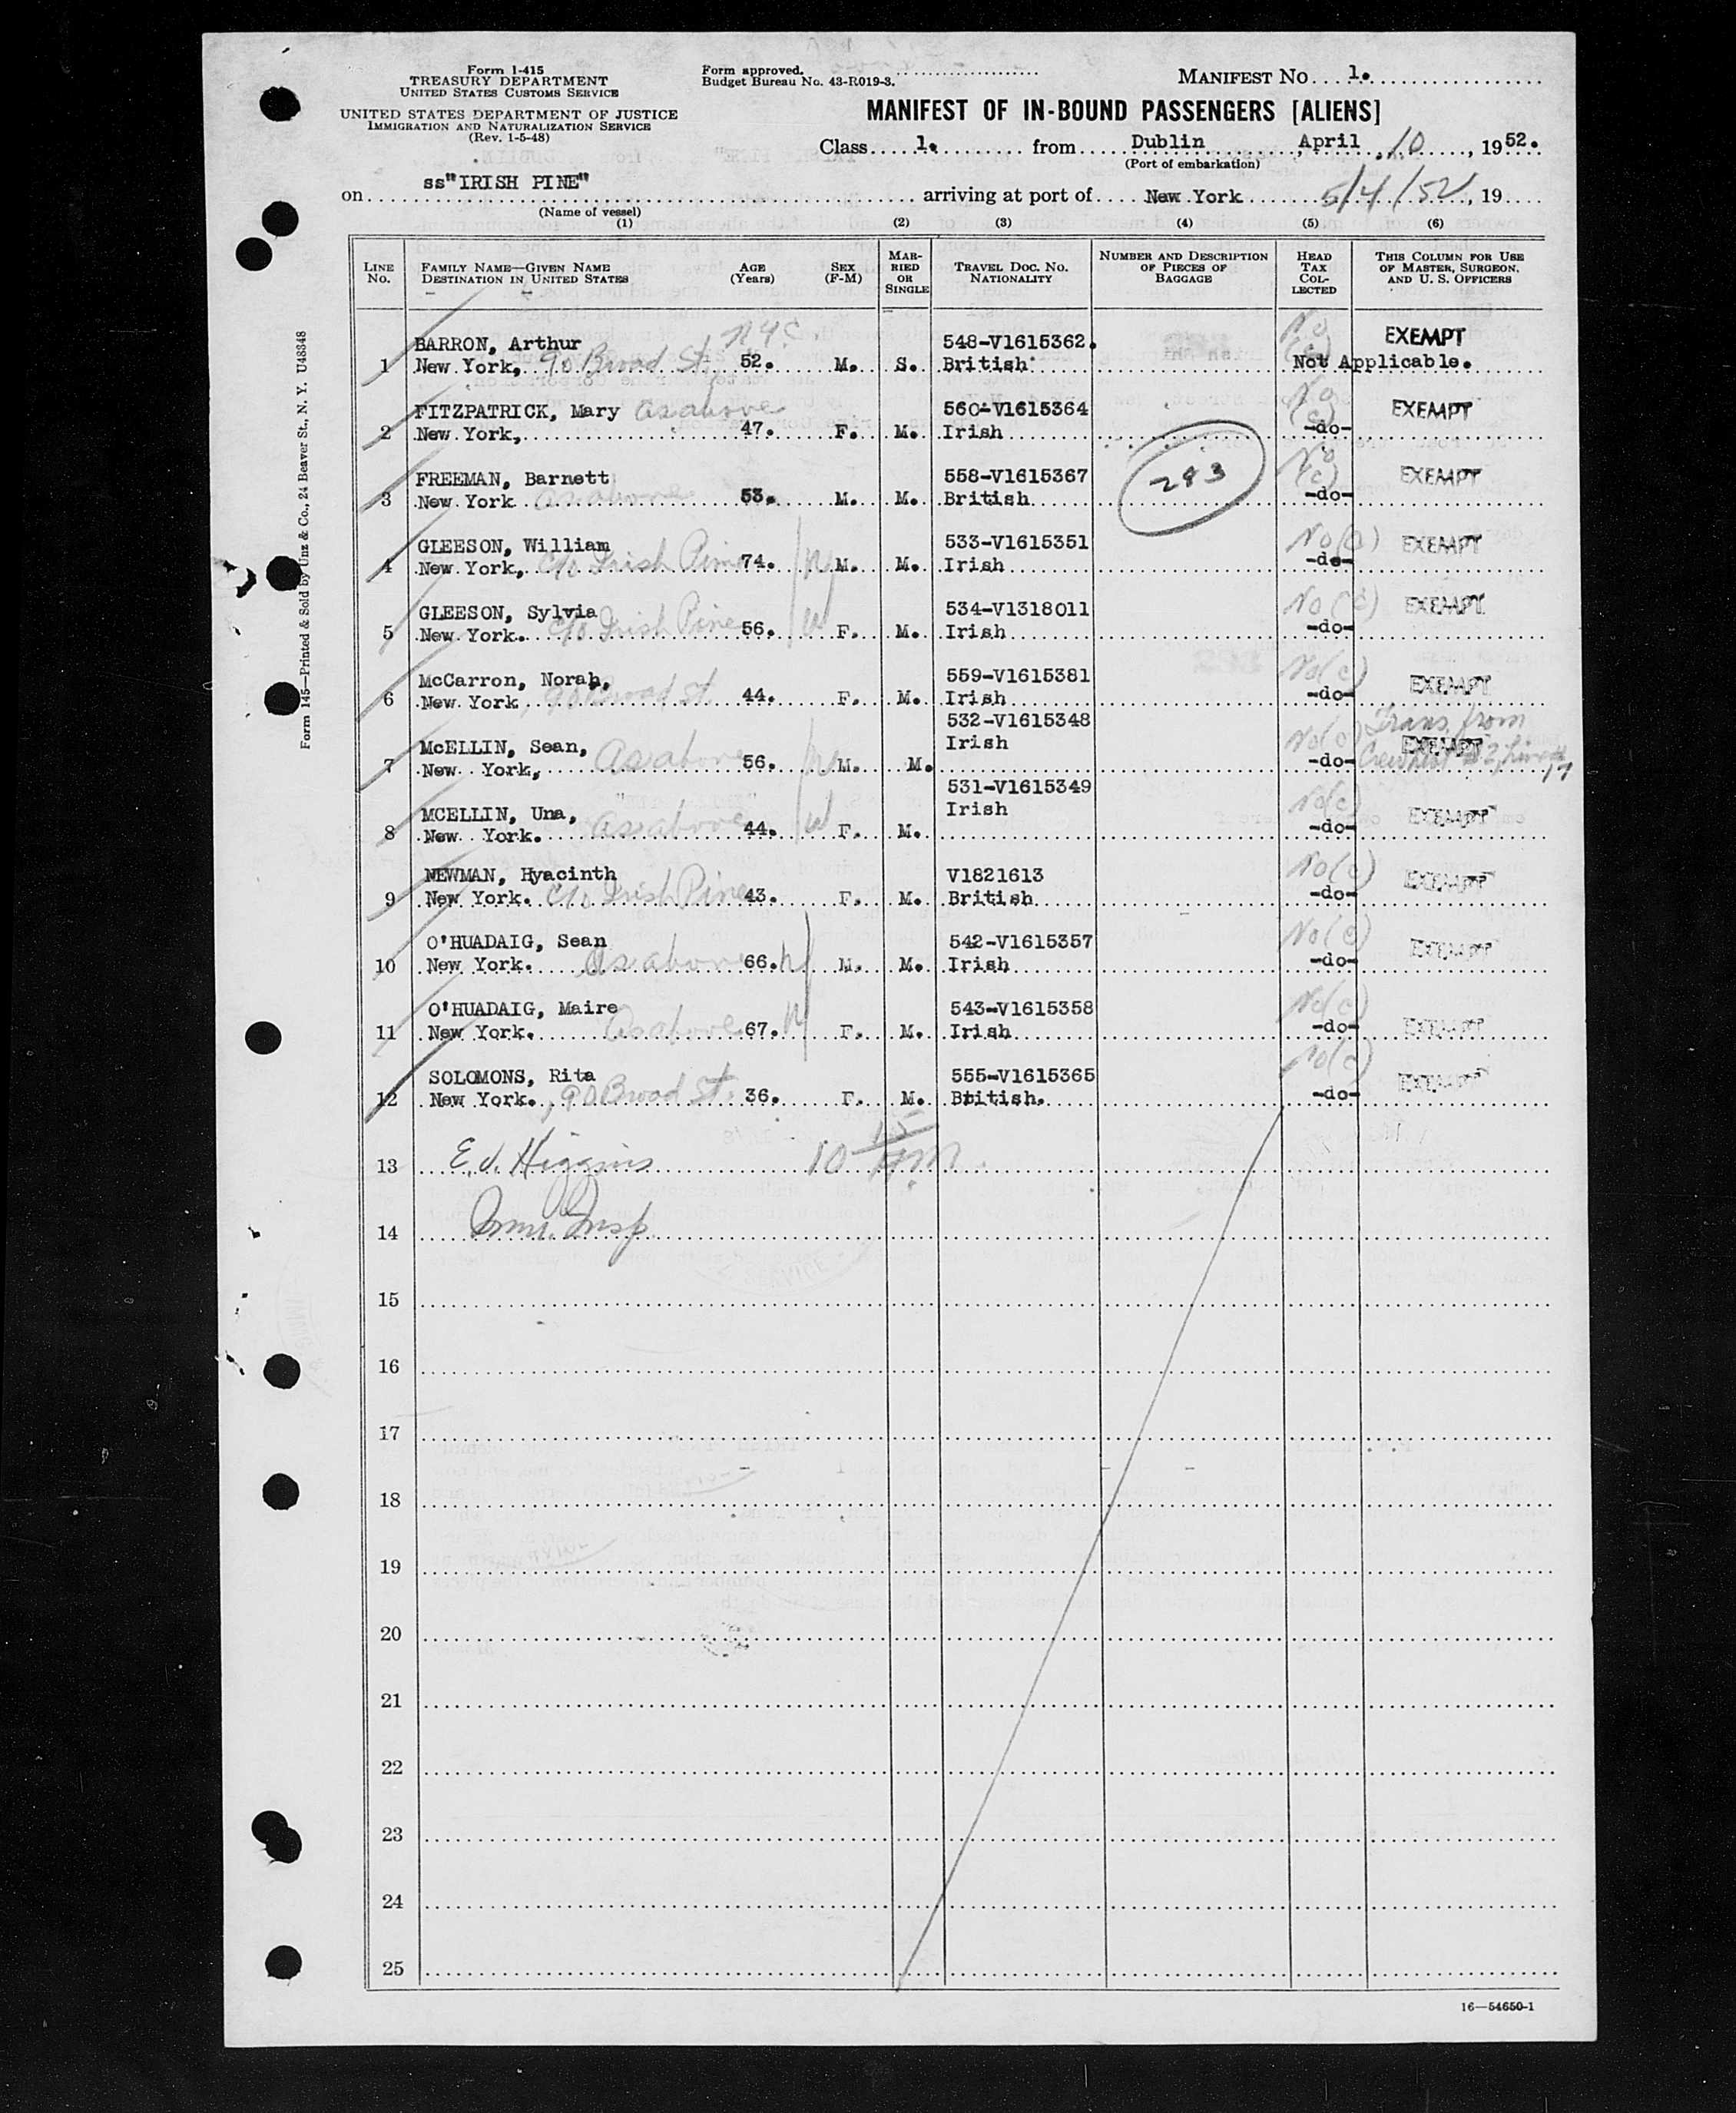 Form I-415
TREASURY DEPARTMENT
UNITED STATES CUSTOMS SERVICE
UNITED STATES DEPARTMENT OF JUSTICE
IMMIGRATION AND NATURALIZATION SERVICE
(Rev. 1-5-48)
Form approved.
Budget Bureau No. 43-R019-3.
MANIFEST NO. 1.
MANIFEST OF IN-BOUND PASSENGERS [ALIENS]
Class 1. from Dublin, April 10, 1952.
(Port of embarkation)
on ss"IRISH PINE" arriving at port of New York 5/4/52, 19
(Name of vessel)
(1) (2) (3) (4) (5) (6)
LINE NO. FAMILY NAME—GIVEN NAME DESTINATION IN UNITED STATES AGE (Years) SEX (F-M) MARRIED OR SINGLE TRAVEL DOC. NO. NATIONALITY NUMBER AND DESCRIPTION OF PIECES OF BAGGAGE HEAD TAX COLLECTED THIS COLUMN FOR USE OF MASTER, SURGEON, AND U. S. OFFICERS
BARRON, Arthur NYC. 548-V1615362. No (c) EXEMPT
1 New York, 90 Broad St., 52. M. S. British Not Applicable.
FITZPATRICK, Mary as above 560-V1615364 No (c) EXEMPT
2 New York, 47. F. M. Irish -do-
FREEMAN, Barnett 558-V1615367 293 No (c) EXEMPT
3 New York as above 53. M. M. British -do-
GLEESON, William 533-V1615351 No EXEMPT
4 New York, c/o Irish Pine 74. M. M. Irish -do-
GLEESON, Sylvia 534-V1318011 No (c) EXEMPT
5 New York. c/o Irish Pine 56. F. M. Irish -do-
McCarron, Norah, 559-V1615381 No (c) EXEMPT
6 New York, 90 Broad St. 44. F. M. Irish -do-
532-V1615348 Trans from
McELLIN, Sean, Irish No (c) EXEMPT
7 New York, As above 56. M. M. -do- Crew list
531-V1615349
MCELLIN, Una, Irish No (c) EXEMPT
8 New York. as above 44. F. M. -do-
NEWMAN, Hyacinth V1821613 No (c) EXEMPT
9 New York. c/o Irish Pine 43. F. M. British -do-
O'HUADAIG, Sean 542-V1615357 No (c) EXEMPT
10 New York. As above 66. M. M. Irish -do-
O'HUADAIG, Maire 543-V1615358 No (c) EXEMPT
11 New York. As above 67. F. M. Irish -do-
SOLOMONS, Rita 555-V1615365 No (c) EXEMPT
12 New York., 90 Broad St. 36. F. M. British. -do-
13 E. J. Higgins 10 15 AM
14 Imm. Insp.
15
16
17
18
19
20
21
22
23
24
25
16—54650-1
Form 145—Printed & Sold by Unz & Co., 24 Beaver St., N. Y. U48348